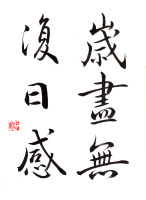 歳盡無
復日感